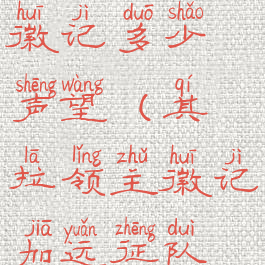 huī jì duō shǎo
徽记 多少
shēng wàng qí
声望 (其
lā lǐng zhǔ huī jì
拉领主徽记
jiā yuǎn zhēng duì
加远征队